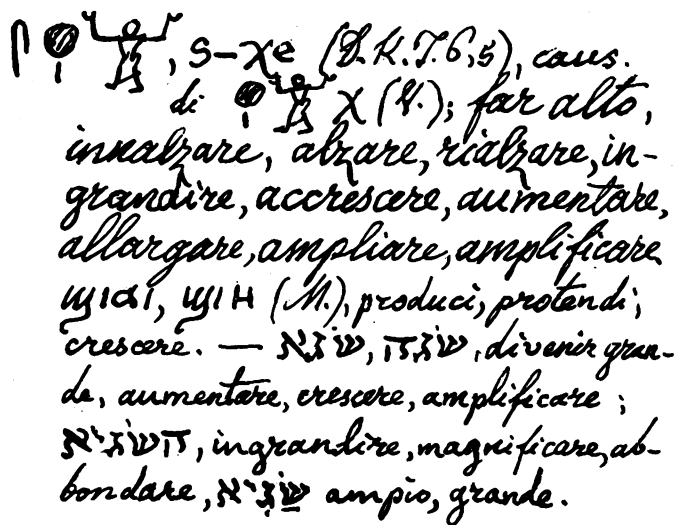 𓋴𓐍𓏤𓀠, s-χe (D.K.T.6,5), caus.
di 𓐍𓏤𓀠 χ (V.); far alto,
innalzare, alzare, rialzare, in-
grandire, accrescere, aumentare,
allargare, ampliare, amplificare
ϣⲓⲁⲓ, ϣⲓⲏ (M.), produci, protendi;
crescere. — שׂגא, שׂגה, divenir gran-
de, aumentare, crescere, amplificare;
השׂגיא, ingrandire, magnificare, ab-
bondare, שַׂגִּיא ampio, grande.